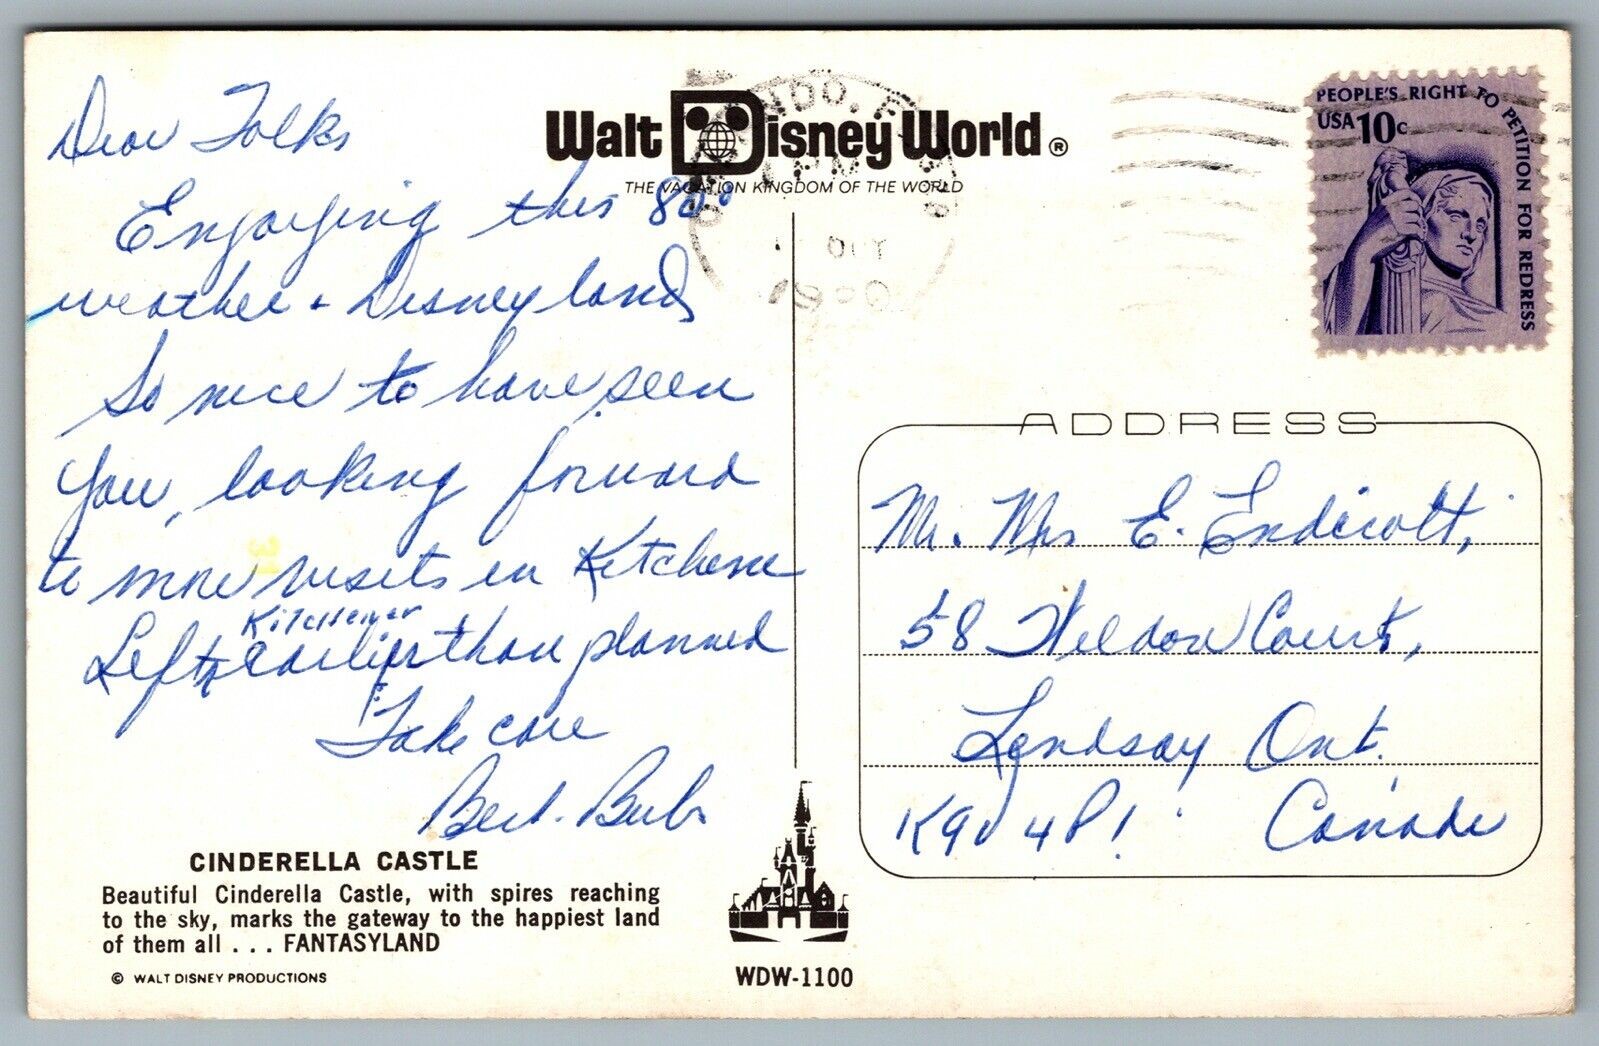 Dear Folks
Enjoying this 80°
weather + Disneyland
So nice to have seen
you, looking forward
to more visits in Kitchene
Kitchener
Left earlier than planned
Take care
Bert. Barb
CINDERELLA CASTLE
Beautiful Cinderella Castle, with spires reaching
to the sky, marks the gateway to the happiest land
of them all . . . FANTASYLAND
© WALT DISNEY PRODUCTIONS
Walt Disney World ®
THE VACATION KINGDOM OF THE WORLD
PM
OCT
WDW-1100
PEOPLE'S RIGHT TO PETITION FOR REDRESS
USA 10c
ADDRESS
Mr. Mrs E. Endicott,
58 Weldon Court,
Lindsay Ont.
K9V 4P1 Canada